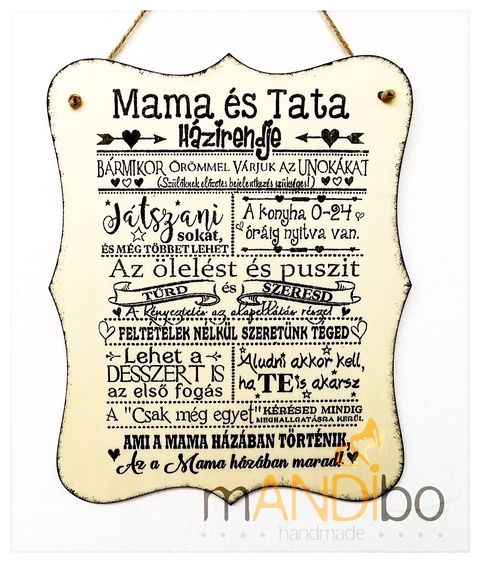 Mama és Tata
Házirendje
BÁRMIKOR ÖRÖMMEL VÁRJUK AZ UNOKÁKAT
(Szülőknek előzetes bejelentkezés szükséges!)
Játszani
sokat,
ÉS MÉG TÖBBET LEHET
A konyha 0-24
óráig nyitva van.
Az ölelést és puszit
TŰRD és SZERESD
A kényeztetés az alapellátás része!
FELTÉTELEK NÉLKÜL SZERETÜNK TÉGED
Lehet a
DESSZERT IS
az első fogás
Aludni akkor kell,
ha TE is akarsz
A "Csak még egyet" KÉRÉSED MINDIG
MEGHALLGATÁSRA KERÜL
AMI A MAMA HÁZÁBAN TÖRTÉNIK,
Az a Mama házában marad!!
mANDibo
handmade